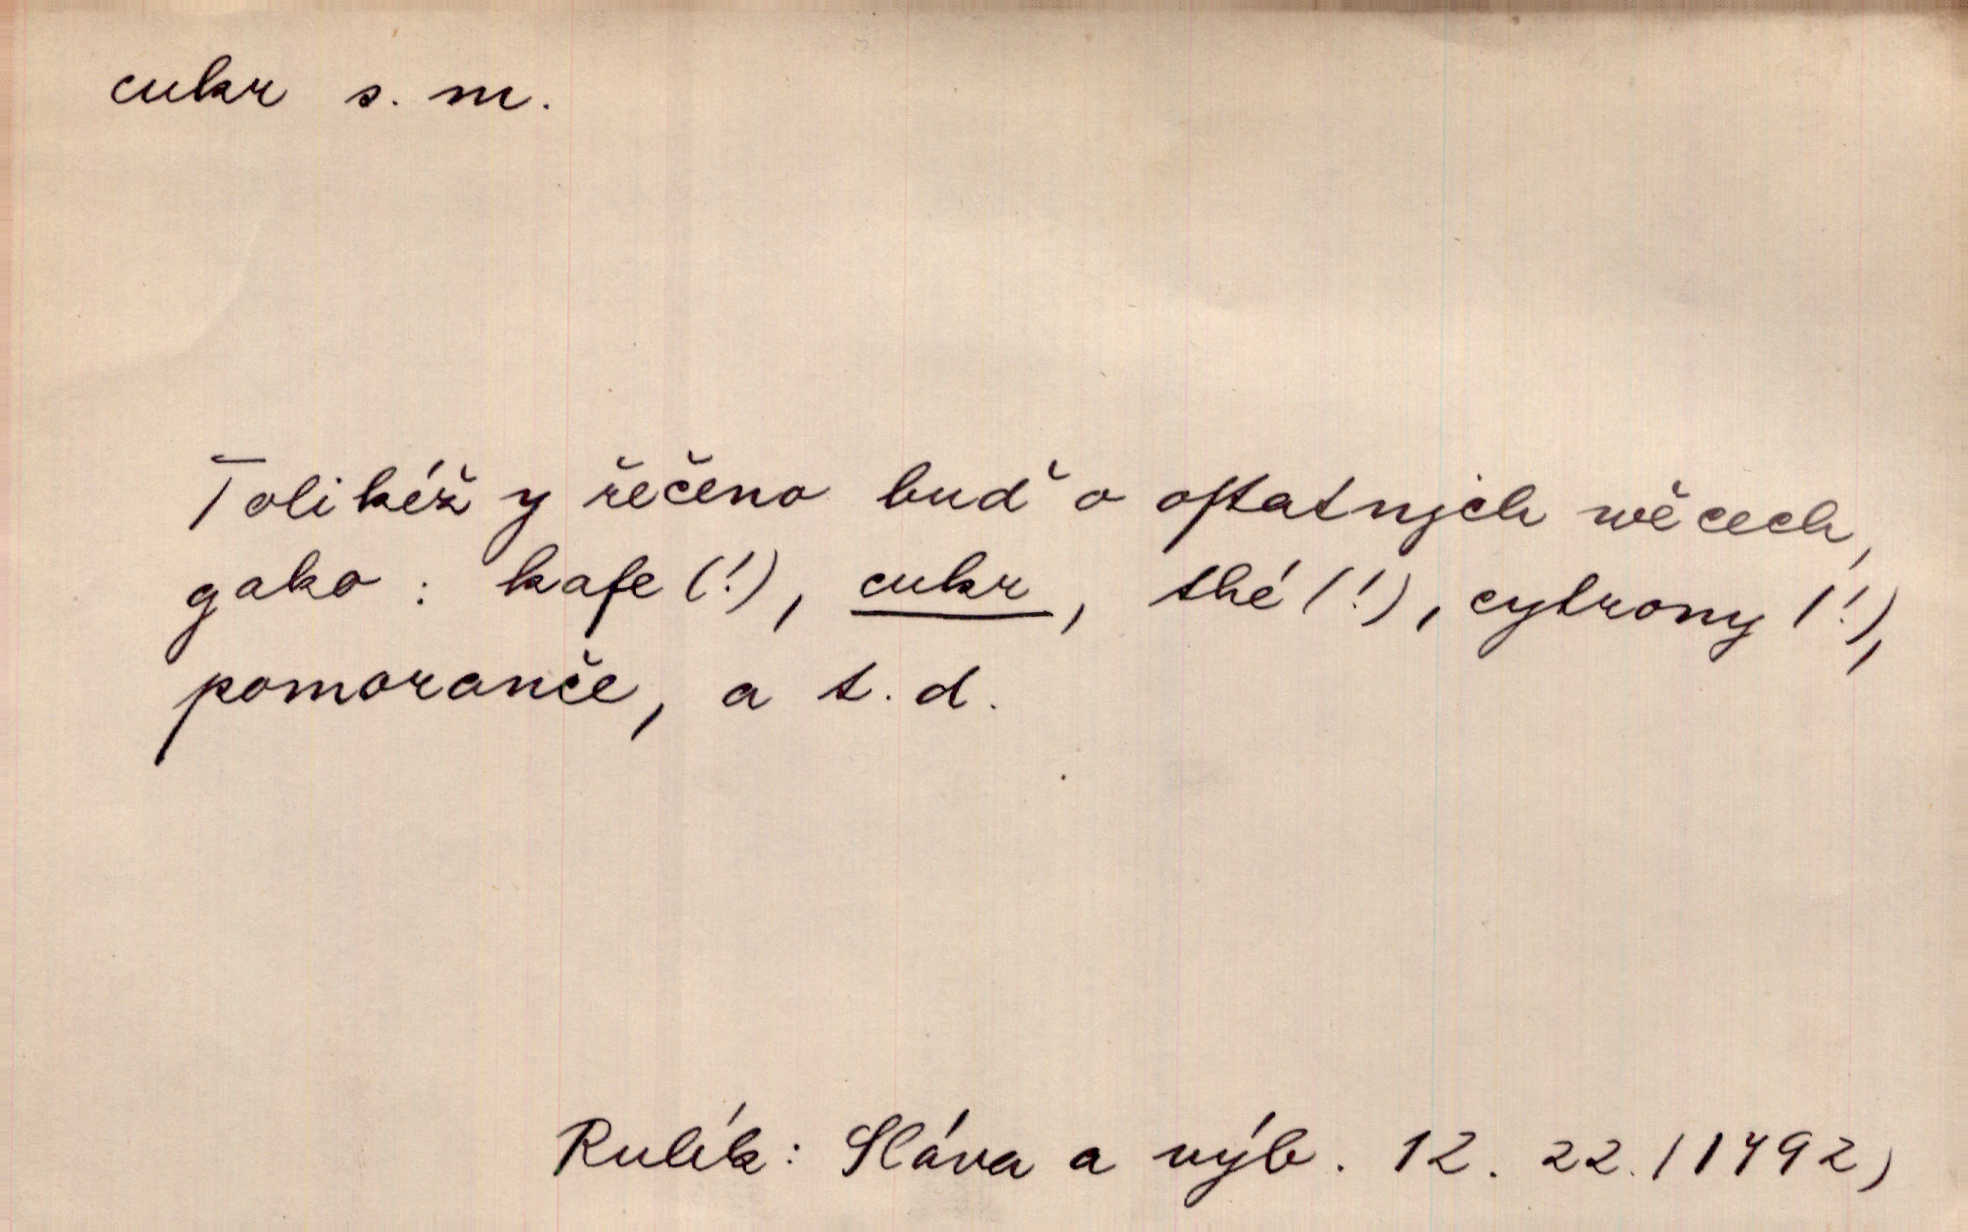 cukr s. m.
Tolikéž y řečeno buď o oſtatnjch wěcech,
gako : kafe (!), cukr, thé (!), cytrony (!),
pomoranče, a t. d.
Rulík: Sláva a výb. 12. 22. (1792)